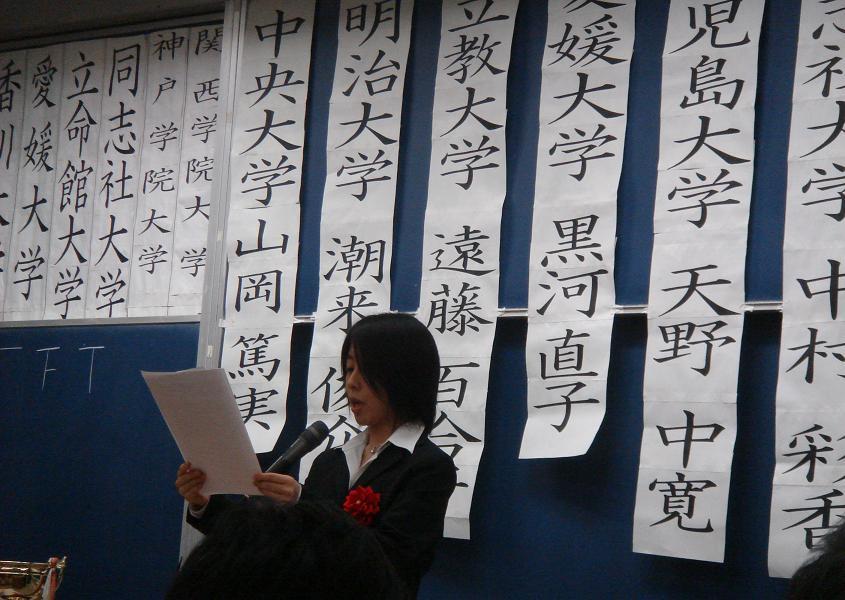 志社大学 中村 彩香
児島大学 天野 中寛
媛大学 黒河 直子
立教大学 遠藤 百合
明治大学 潮来 俊
中央大学 山岡 篤実
関西学院大学
神戸学院大学
同志社大学
立命館大学
愛媛大学
香川大学
T F T